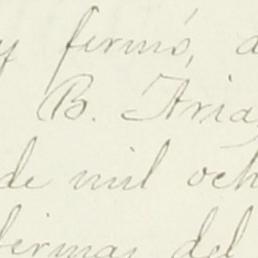 y firmó, a
B. Arias
de mil och
firmas del